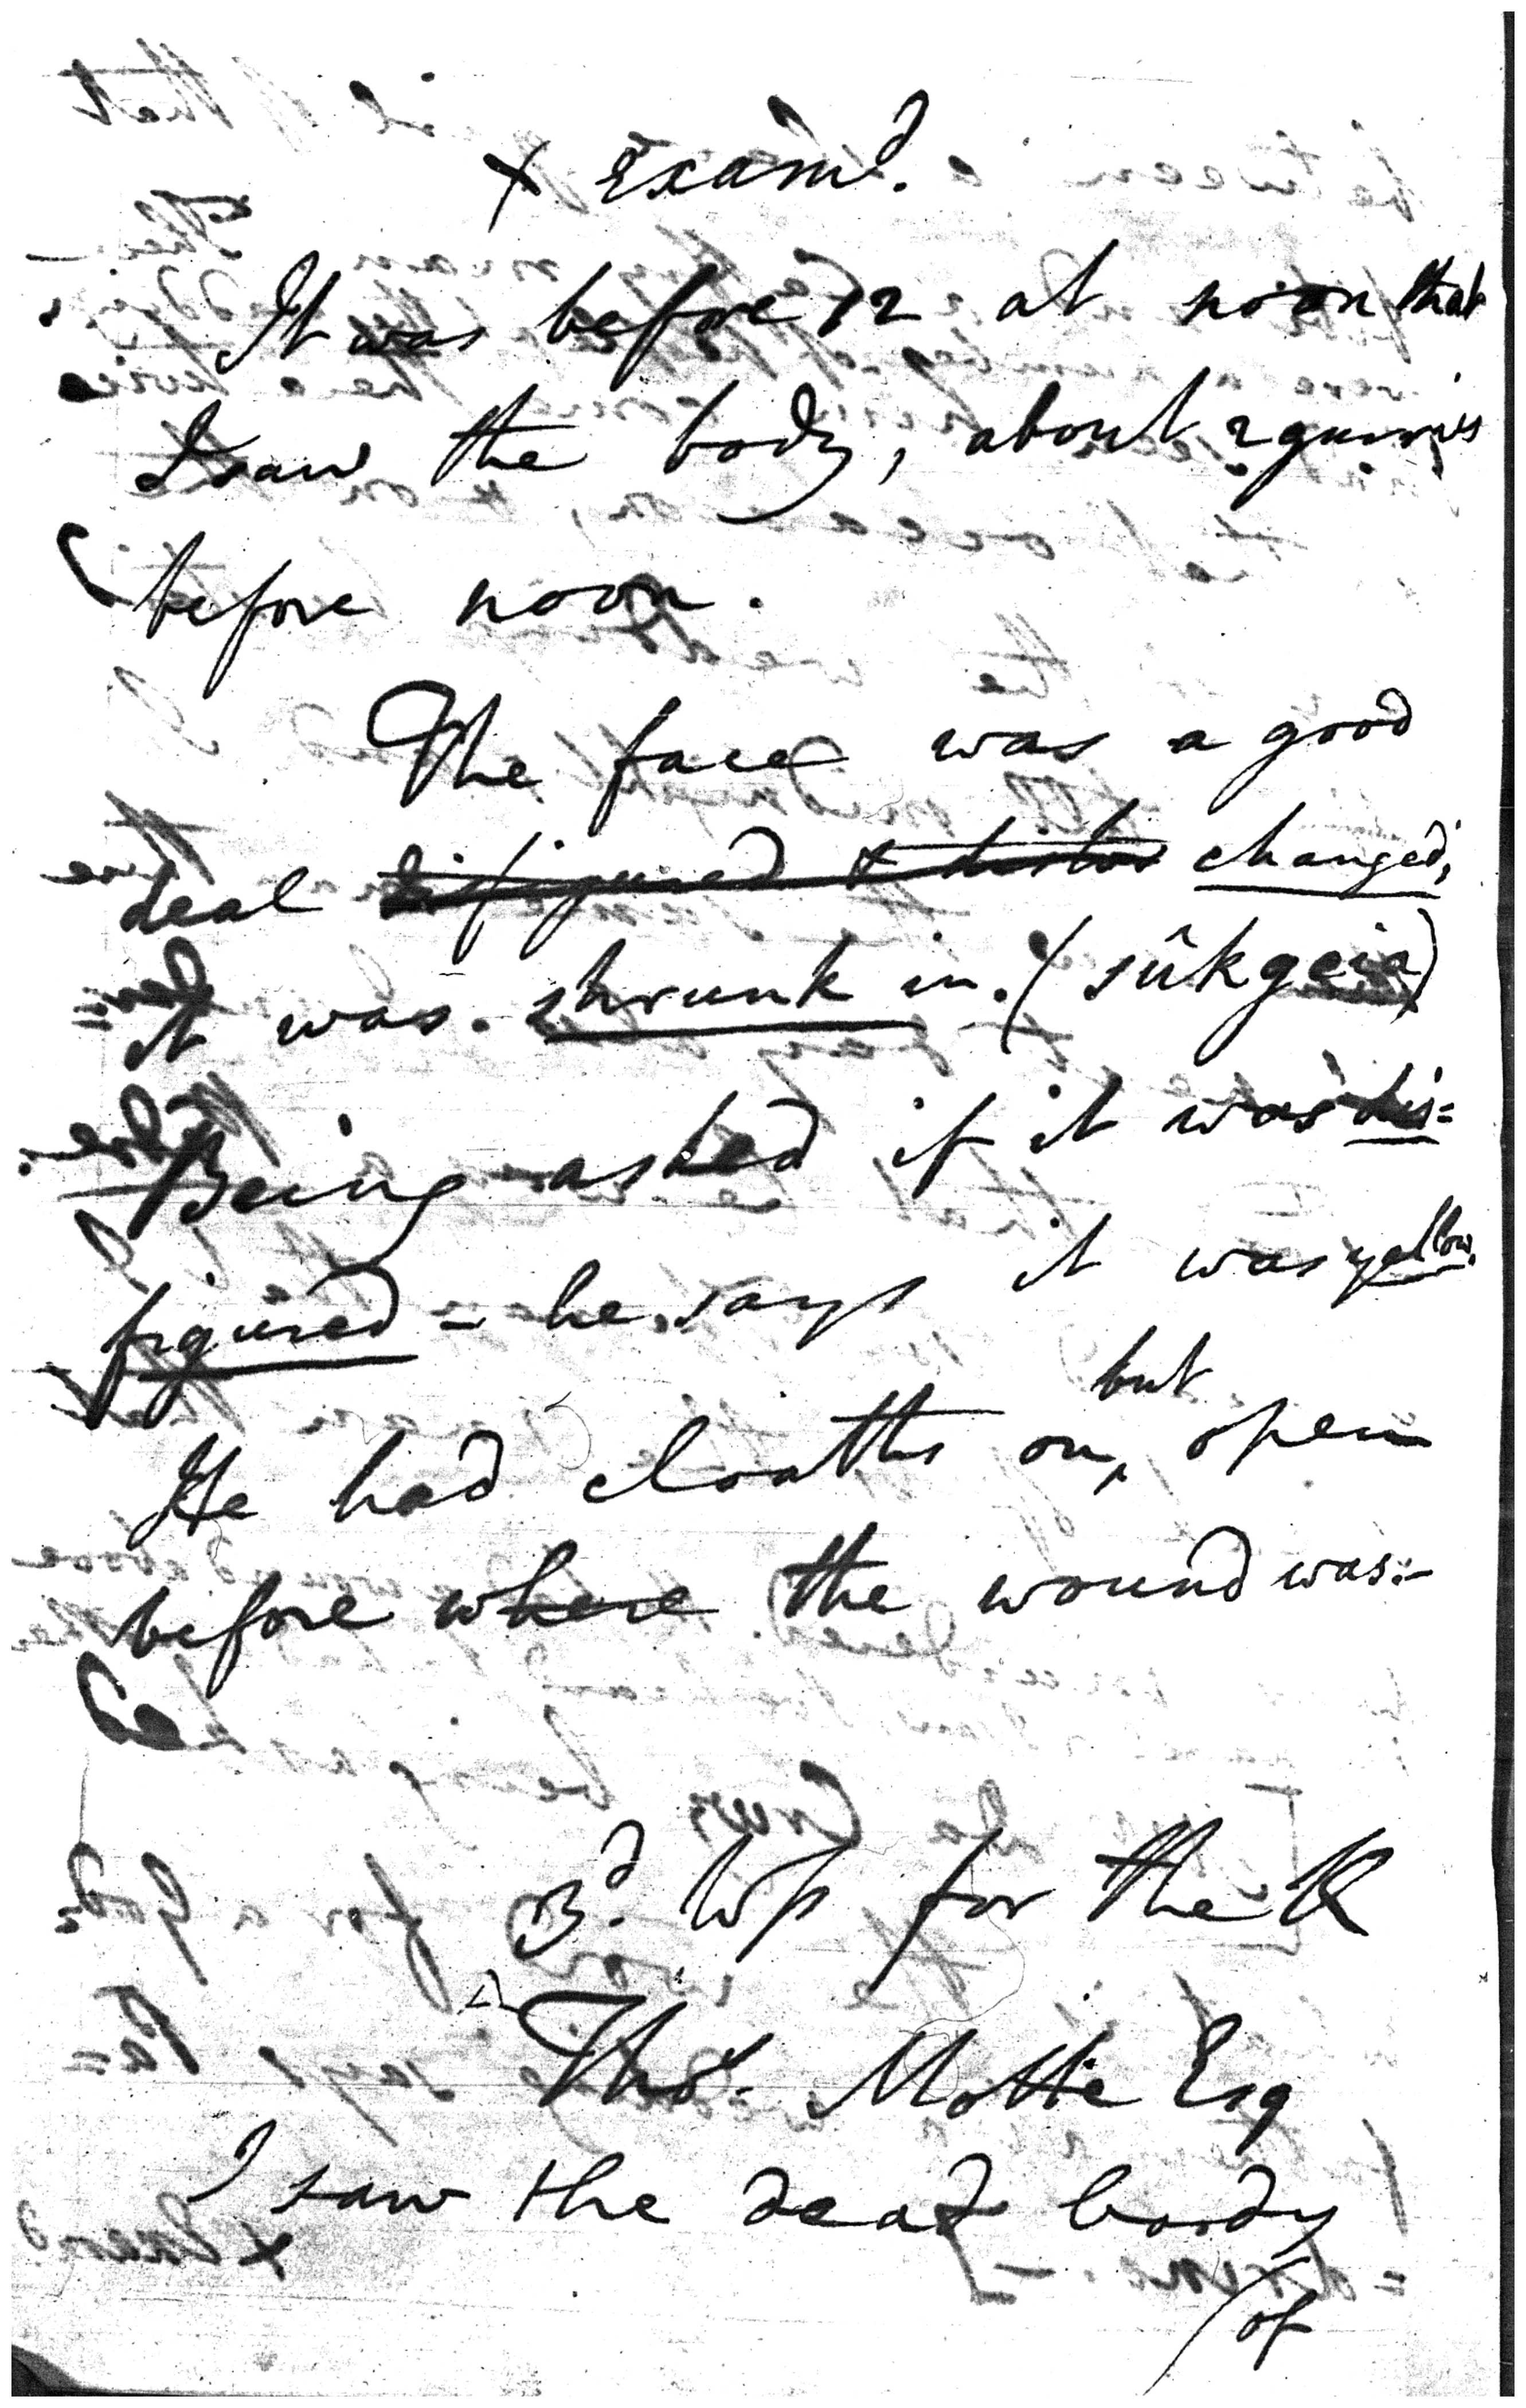 x Exam.d
It was before 12 at noon that
I saw the body, about 2 gurries
before noon.
The face was a good
deal disfigured & distor changed,
it was. shrunk in. (sûkgeia)
Being asked if it was dis=
figured - he says it was yellow.
He had cloaths on, but open
before where the wound was:-
3.d Wss for the K
Tho.s Motte Esq
I saw the dead body
/of